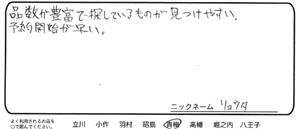 品数が豊富で探しているものが見つけやすい.
予約開始が早い。
ニックネーム リョウタ
よく利用されるお店を
○で囲んでください。 立川 小作 羽村 昭島 青梅 高幡 堀之内 八王子